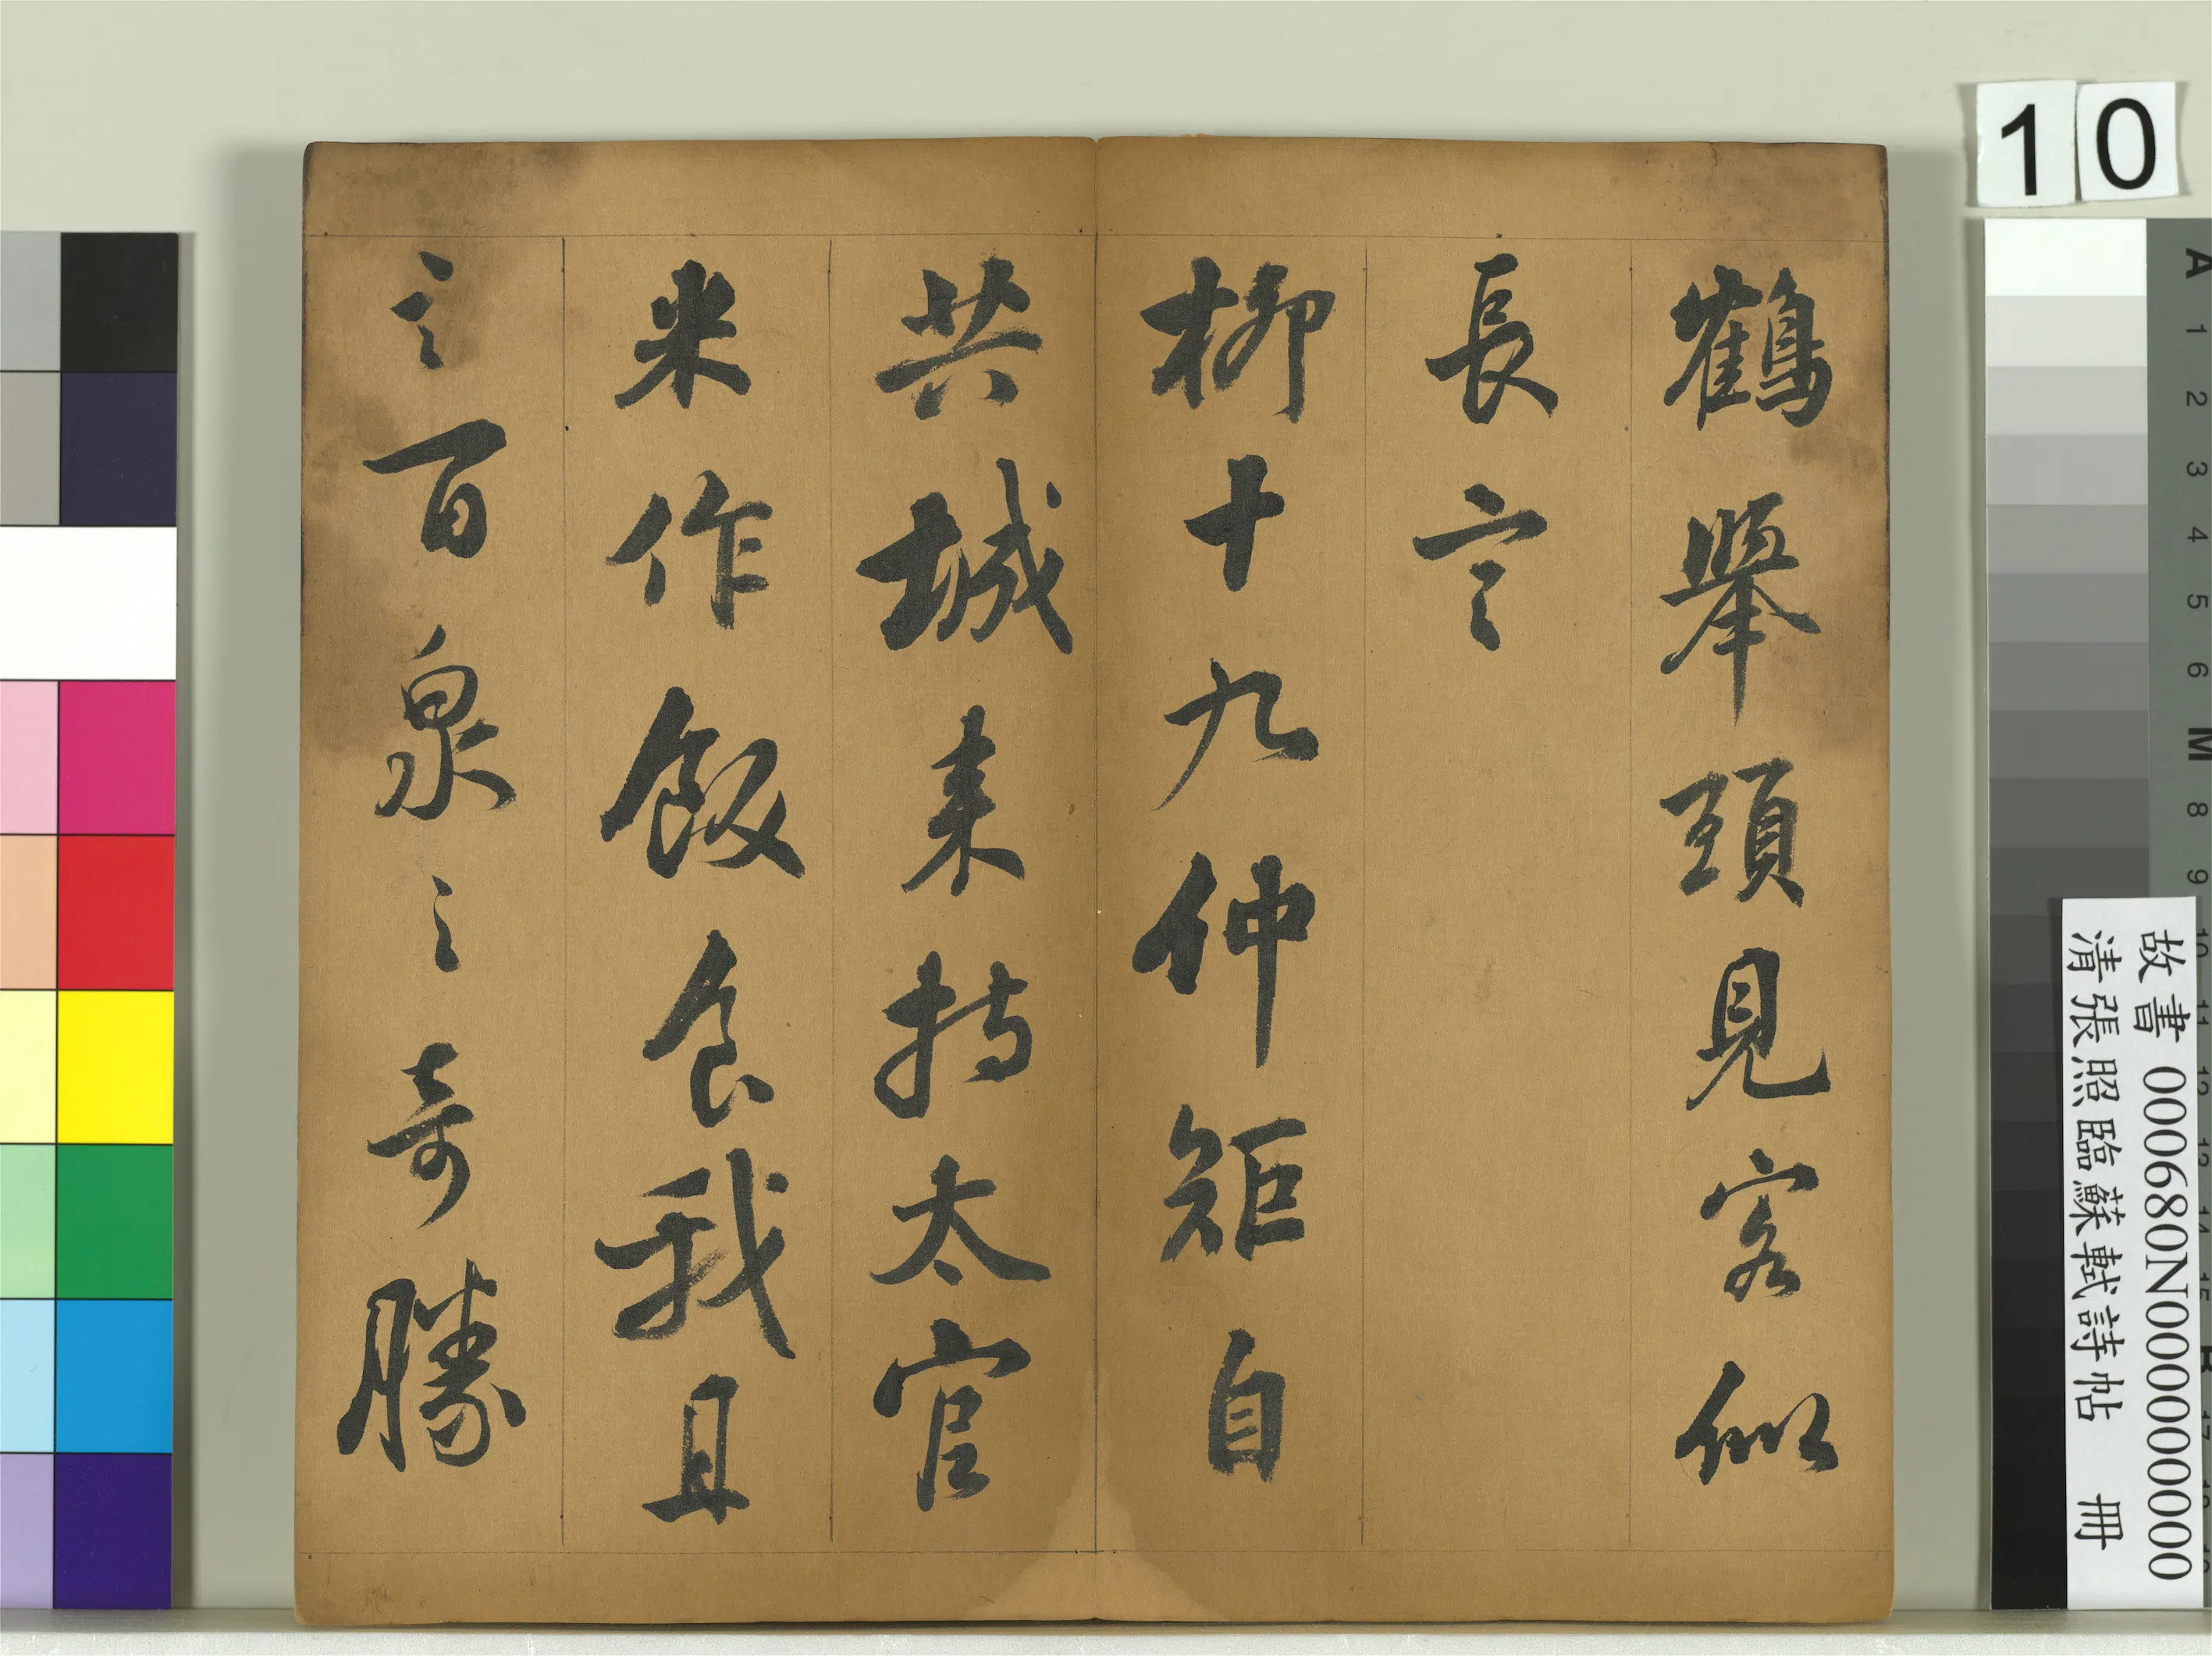 鶴舉頭見客似
長言
柳十九仲矩自
共城来持太官
米作飯食我且
言百泉之奇勝
10
故書 000680N000000000
清張照臨蘇軾詩帖 冊
A
1
2
3
4
5
6
M
8
9
10
11
12
13
14
15
B
17